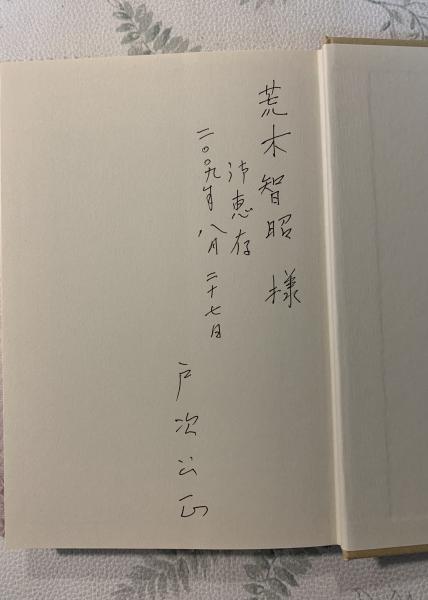 荒木智昭 様
恵存
二〇〇九年 八月 二十七日
戸次公正